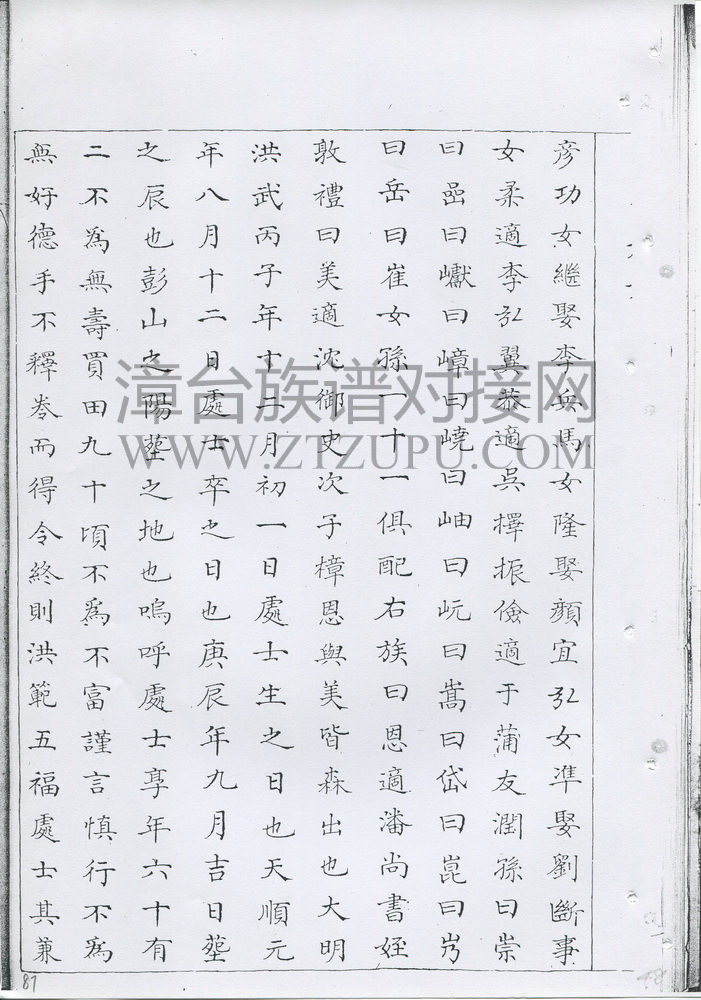 彦功女繼娶李兵馬女隆娶顔宜弘女準娶劉斷事
女柔適李弘翼恭適吳檡振儉適于蒲友潤孫曰崇
曰嵒曰巘曰嶂曰嶢曰岫曰岏曰嵩曰岱曰崑曰岃
曰岳曰崔女孫一十一俱配右族曰恩適潘尚書姪
敦禮曰美適沈御史次子樟恩與美皆森出也大明
洪武丙子年十二月初一日處士生之日也天順元
年八月十二日處士卒之日也庚辰年九月吉日塟
之辰也彭山之陽塟之地也嗚呼處士享年六十有
二不為無壽買田九十頃不為不富謹言慎行不為
無好德手不釋卷而得令終則洪範五福處士其兼
漳台族谱对接网
WWW.ZTZUPU.COM
87